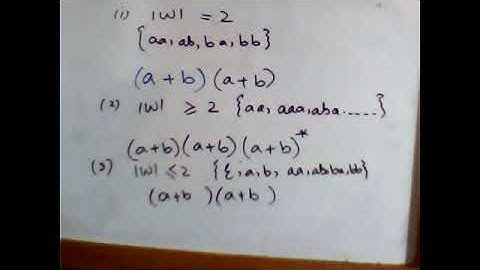 (1) |W| = 2
{aa, ab, ba, bb}
(a + b) (a + b)
(2) |W| ≥ 2 {aa, aaa, aba.....}
(a+b)(a+b)(a+b)*
(3) |W| ≤ 2 {ε, a, b, aa, ab, ba, bb}
(a+b )(a+b )